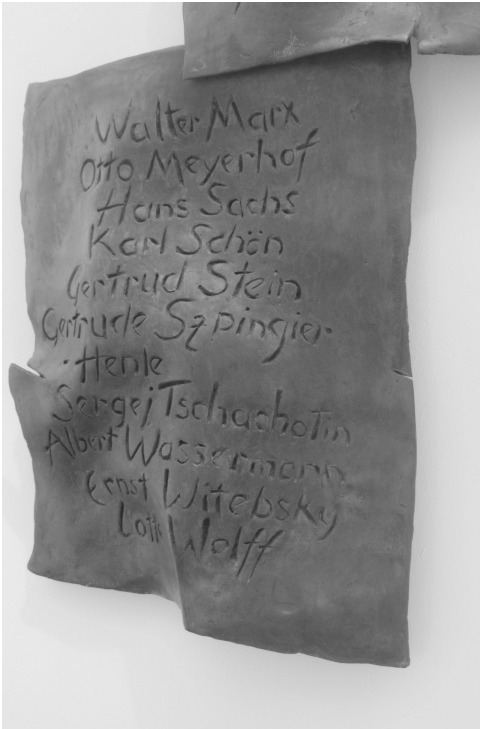 Walter Marx
Otto Meyerhof
Hans Sachs
Karl Schön
Gertrud Stein
Gertrude Szpingier
·Henle
Sergej Tschachotin
Albert Wassermann
Ernst Witebsky
Lotte Wolff